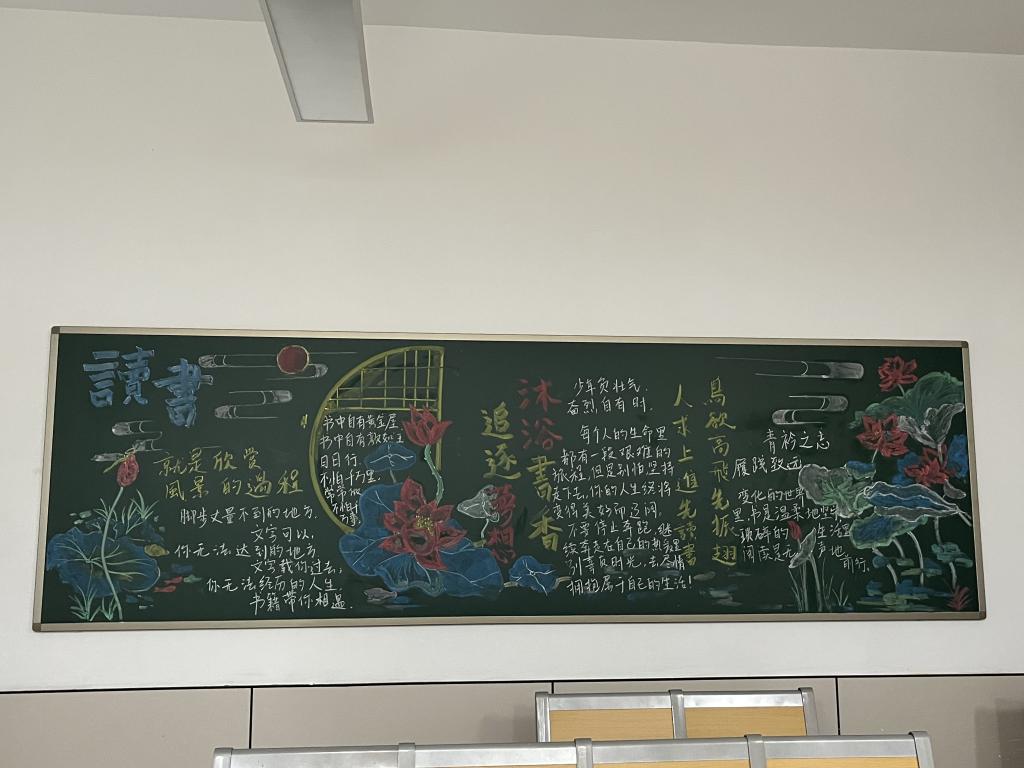 讀書
就是欣賞
風景的過程
脚步丈量不到的地方
文字可以,
你无法达到的地方
文字载你过去,
你无法经历的人生
书籍带你相遇.
书中自有黄金屋
书中自有颜如玉
日日行,
不怕千万里,
常常做
不怕千万事
追逐夢想
沐浴書香
少年负壮气,
奋烈自有时.
每个人的生命里
都有一段艰难的
旅程,但是别怕坚持
走下去,你的人生终将
变得美好而辽阔,
不要停止奔跑,继
续奔走在自己的热爱里
别辜负时光,去尽情
拥抱属于自己的生活!
人求上進先讀書
鳥欲高飛先振翅
青衿之志
履践致远
变化的世界
里,书是温柔地坚守
琐碎的生活里
阅读是无声地
前行.